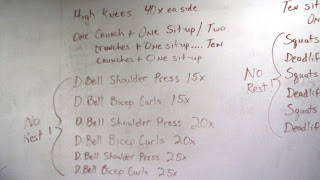 High Knees 40x ea side
One Crunch + One Sit-up / Two
crunches + One sit-up.... Ten
crunches + One sit-up
No Rest!
D.Bell Shoulder Press 15x
D.Bell Bicep Curls 15x
D.Bell Shoulder Press 20x
D.Bell Bicep Curls 20x
D.Bell Shoulder Press 25x
D.Bell Bicep Curls 25x
Ten
Sit
No Rest!
Squats
Deadlif
Squats
Deadlif
Squats
Deadlif